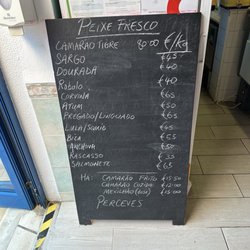 PEIXE FRESCO
€/Kg
CAMARÃO TIGRE 80.00
SARGO €45
DOURADA €40
ROBALO €40
CORVINA €65
ATUM €50
PREGADO/LINGUADO €65
LULA/SQUID €45
BICA €55
ANCHOVA €50
RASCASSO €55
SALMONETE €65
HA: CAMARÃO FRITO €15.50
CAMARÃO COZIDO €12.00
MEXILHÃO €15.50
PERCEVES